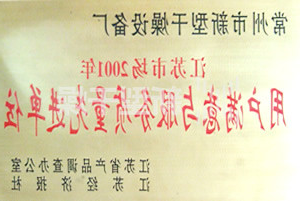 常州市新型干燥设备厂
江苏市场2001年
用户满意与服务质量先进单位
江苏省产品调查办公室
江苏经济报社